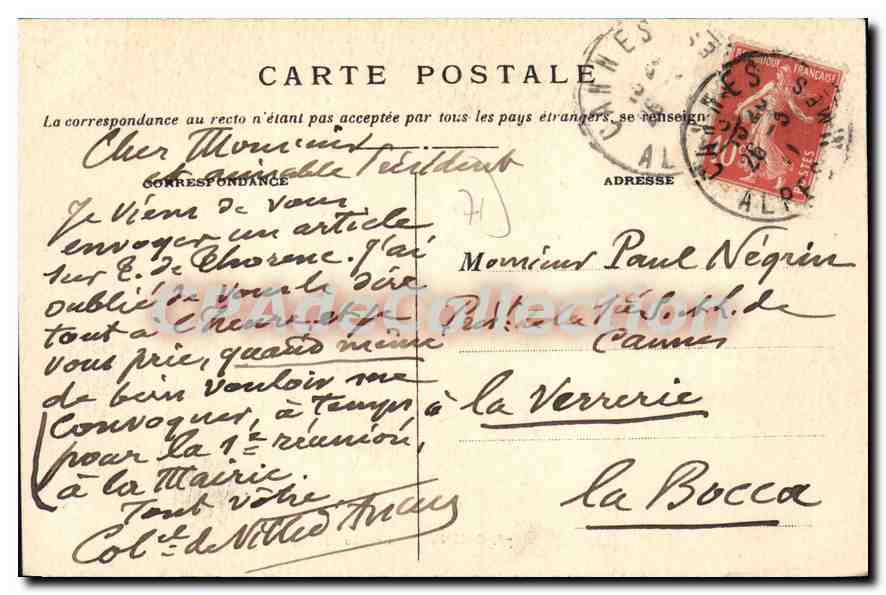 CARTE POSTALE
La correspondance au recto n'étant pas acceptée par tous les pays étrangers, se renseigner
Cher Monsieur
et aimable Président
CORRESPONDANCE
Je viens de vous
envoyer un article
sur E. de Thorenc. J'ai
oublié de vous le dire
tout à l'heure, et je
vous prie, quand même
de bien vouloir me
convoquer, à temps
pour la 1re réunion,
à la Mairie.
Tout vôtre.
Col.el de
71
ADRESSE
Monsieur Paul Négrin
de
Cannes
à la Verrerie
la Bocca
CPAdeCollection
CANNES
CANNES
26
AL
ALP
RÉPUBLIQUE FRANÇAISE
10
POSTES